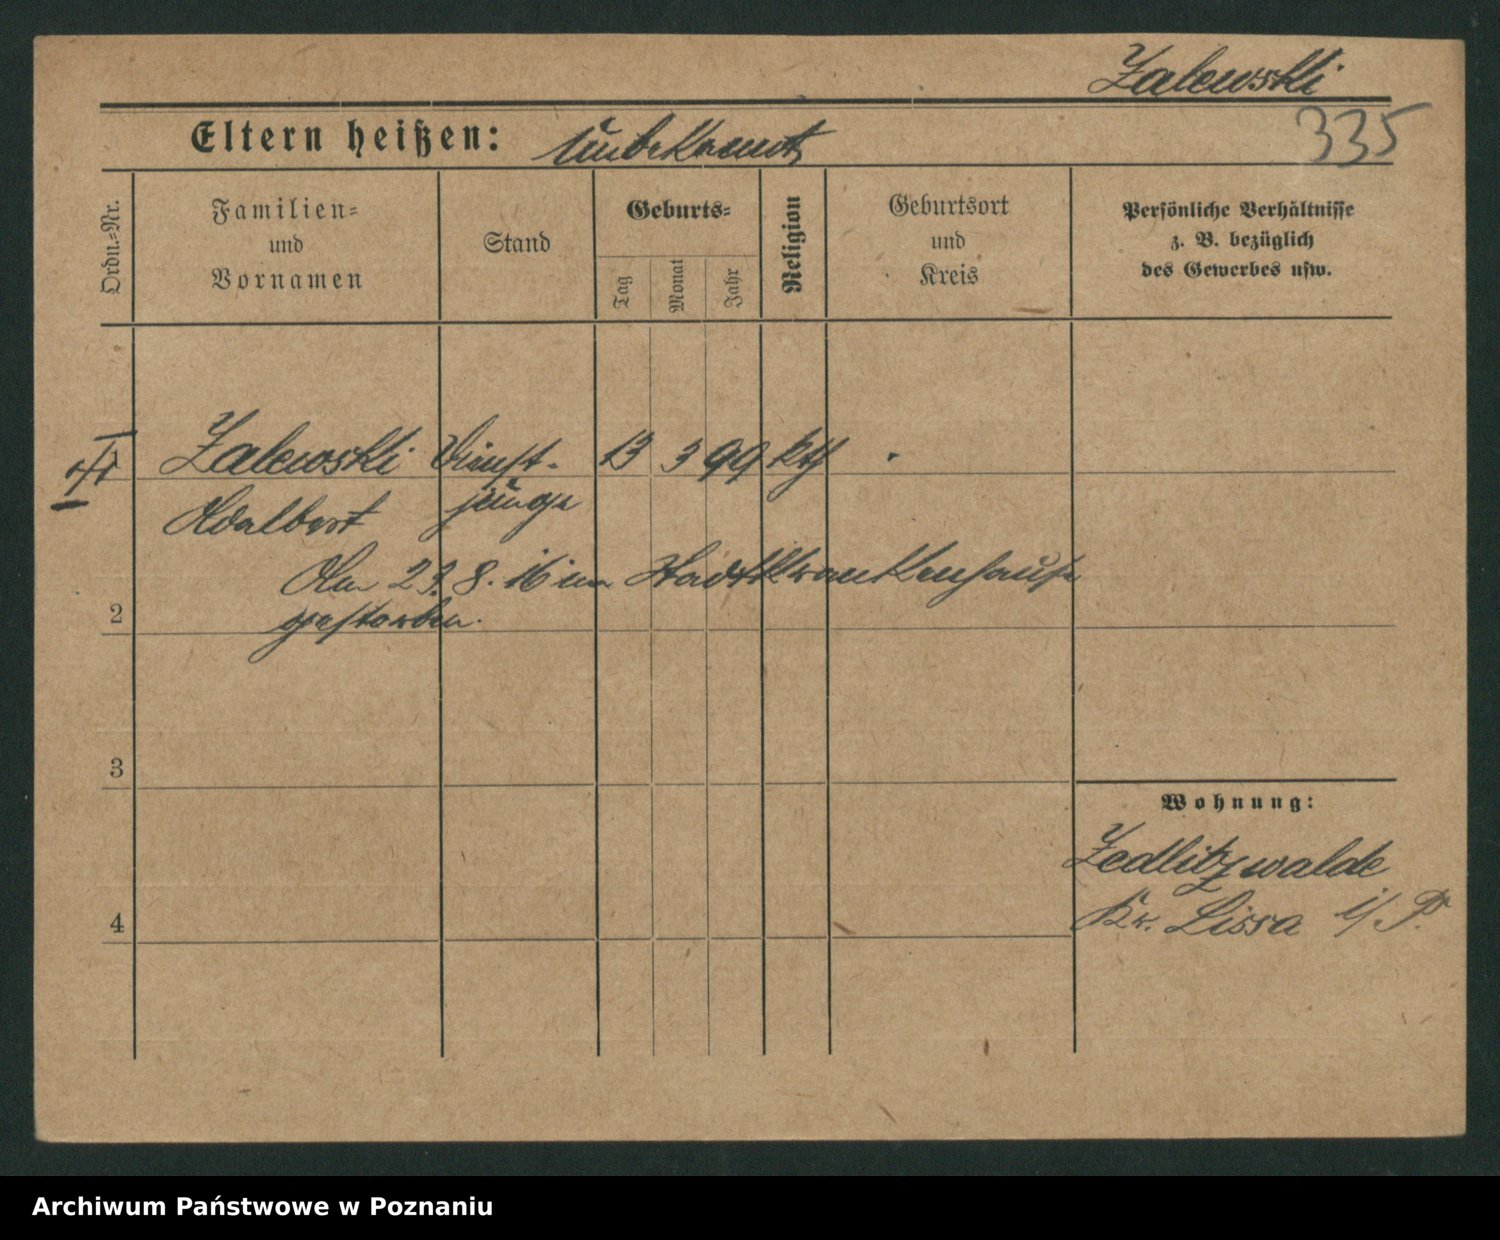 Zalewski
335
Eltern heißen: Unbekannt
Ordn.-Nr.
Familien-
und
Vornamen
Stand
Geburts-
Tag
Monat
Jahr
Religion
Geburtsort
und
Kreis
Persönliche Verhältnisse
z. B. bezüglich
des Gewerbes usw.
Zalewski Dienst- 13 3 99 kth
Adalbert junge
Am 23. 8. 16 im Stadtkrankenhause
2 gestorben.
3
Wohnung:
Zedlitzwalde
4 Kr. Lissa i/P.
Archiwum Państwowe w Poznaniu